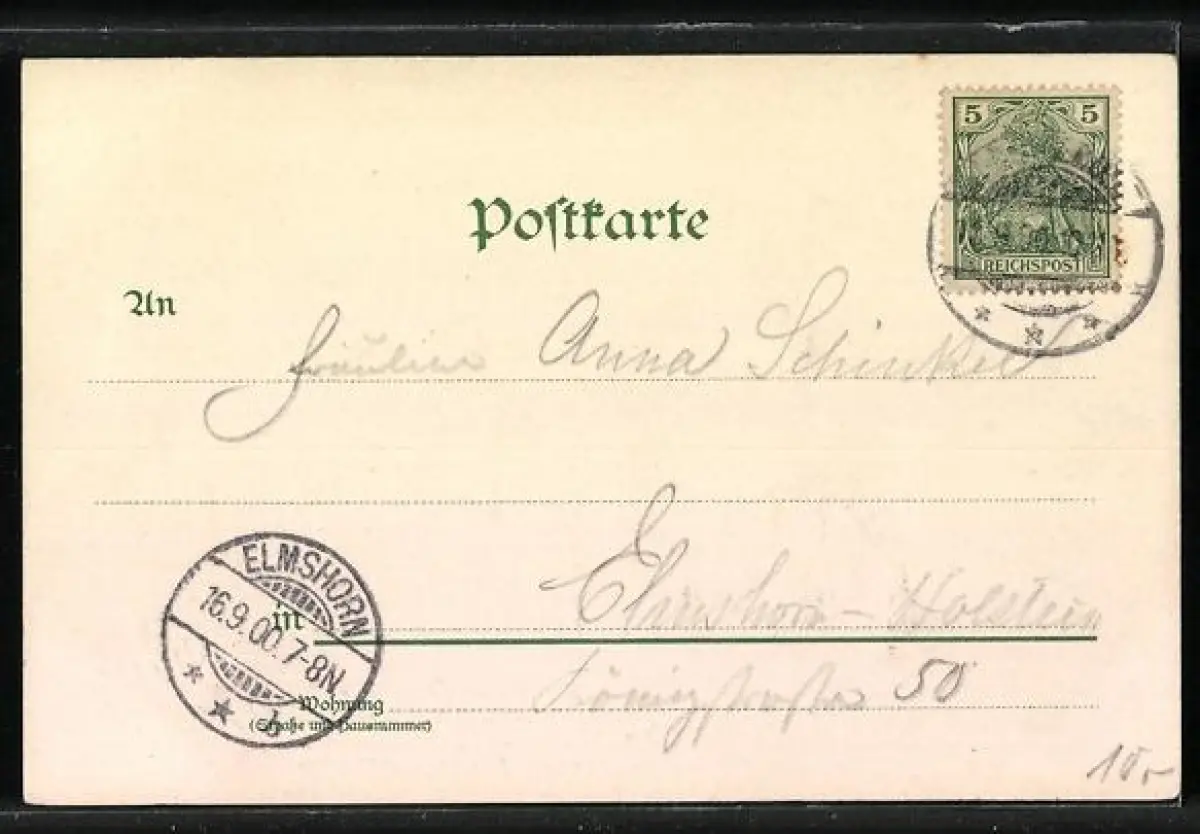 5 5
REICHSPOST
Postkarte
An
Fräulein Anna Schinkel
ELMSHORN
16.9.00.7-8N
b
in
Elmshorn-Holstein
Wohnung
(Straße und Hausnummer)
Königstraße 50
10,-